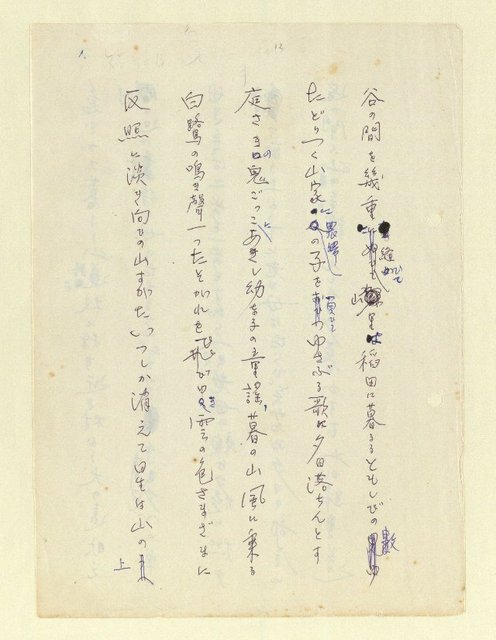 13
谷の間を幾重 縫がて 峡 は稲田に暮るるともしびの数
たどりつく山家に農婦 の子を負ひ ゆさぶる歌に夕日落ちんとす
庭さきの鬼ごっこにあきし幼な子の童謡、暮の山風に乗る
白鷺の鳴き聲一つたそがれを飛び 雲の色さまざまに
反照に淡き向ひの山すがたいつしか消えて星は山の上